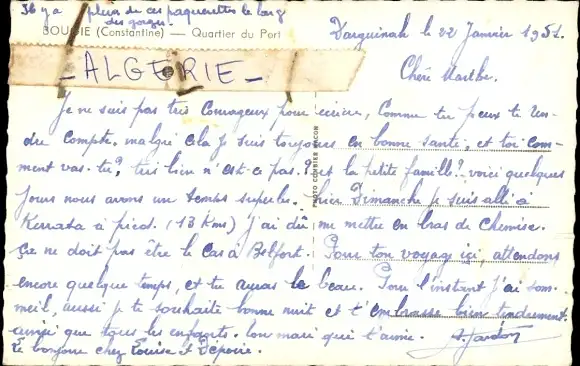 Il y a plein de ces paquerettes le long
des gorges.
BOUGIE (Constantine) — Quartier du Port
Darguinah le 22 Janvier 1951.
- ALGERIE -
Chère Marthe.
Je ne suis pas très courageux pour écrire, comme tu peux te ren-
dre compte. malgré cela je suis toujours en bonne santé, et toi com-
ment vas-tu? très bien n'est-ce pas? et la petite famille? voici quelques
jours nous avons un temps superbe. hier Dimanche je suis allé à
Kerrata à pied. (13 Kms) j'ai dû me mettre en bras de chemise.
ça ne doit pas être le cas à Belfort. Pour ton voyage ici, attendons
encore quelque temps, et tu auras le beau. Pour l'instant j'ai som-
meil, aussi je te souhaite bonne nuit et t'embrasse bien tendrement
ainsi que tous les enfants. ton mari qui t'aime.
le bonjour chez Louise et
PHOTO COMBIER MACON